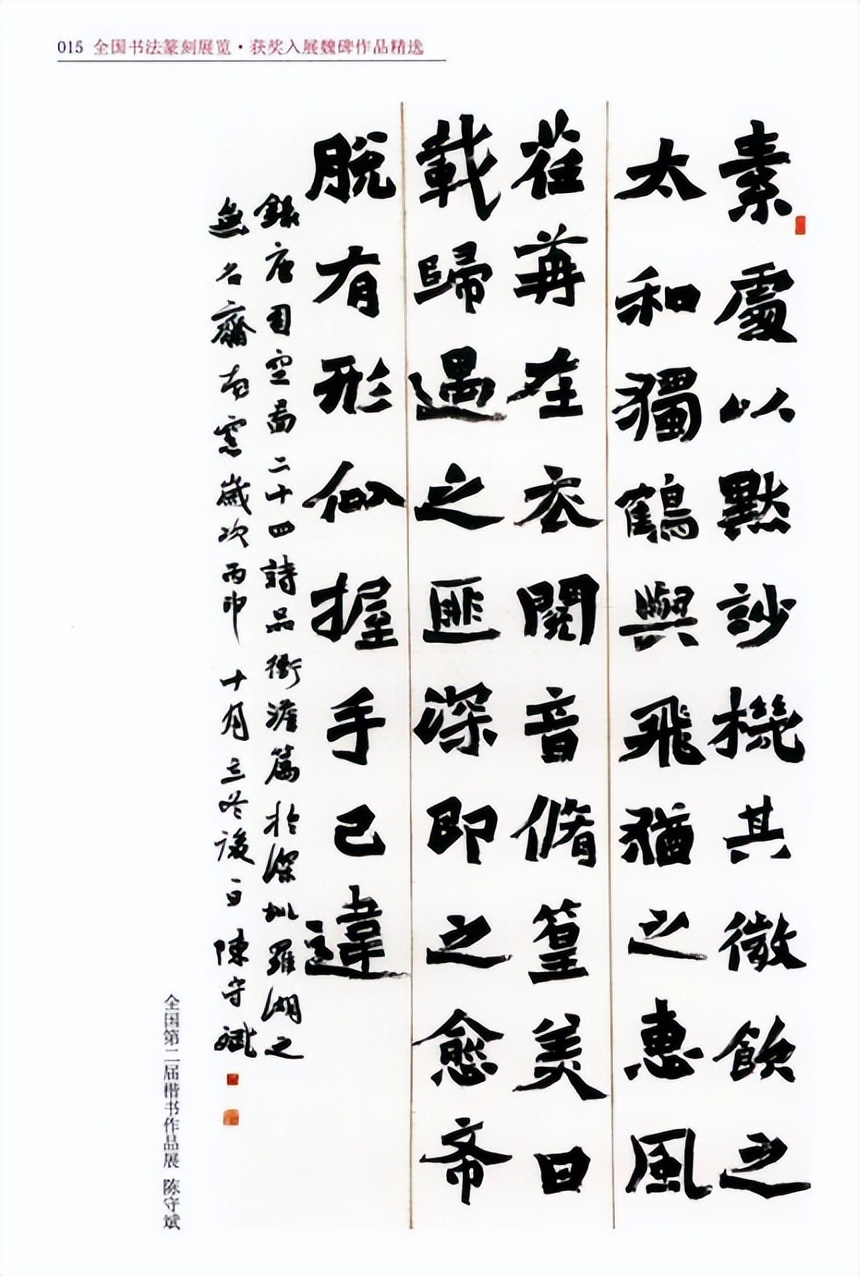 015 全国书法篆刻展览·获奖入展魏碑作品精选
素處以默訬機其微飲之
太和獨鶴與飛猶之惠風
荏苒在衣閱音脩篁美曰
載歸遇之匪深即之愈希
脫有形似握手已違
錄唐司空圖二十四詩品衝澹篇於深圳羅湖之
無名齋南窗歲次丙申十月立冬後一日陳守斌
全国第二届楷书作品展 陈守斌